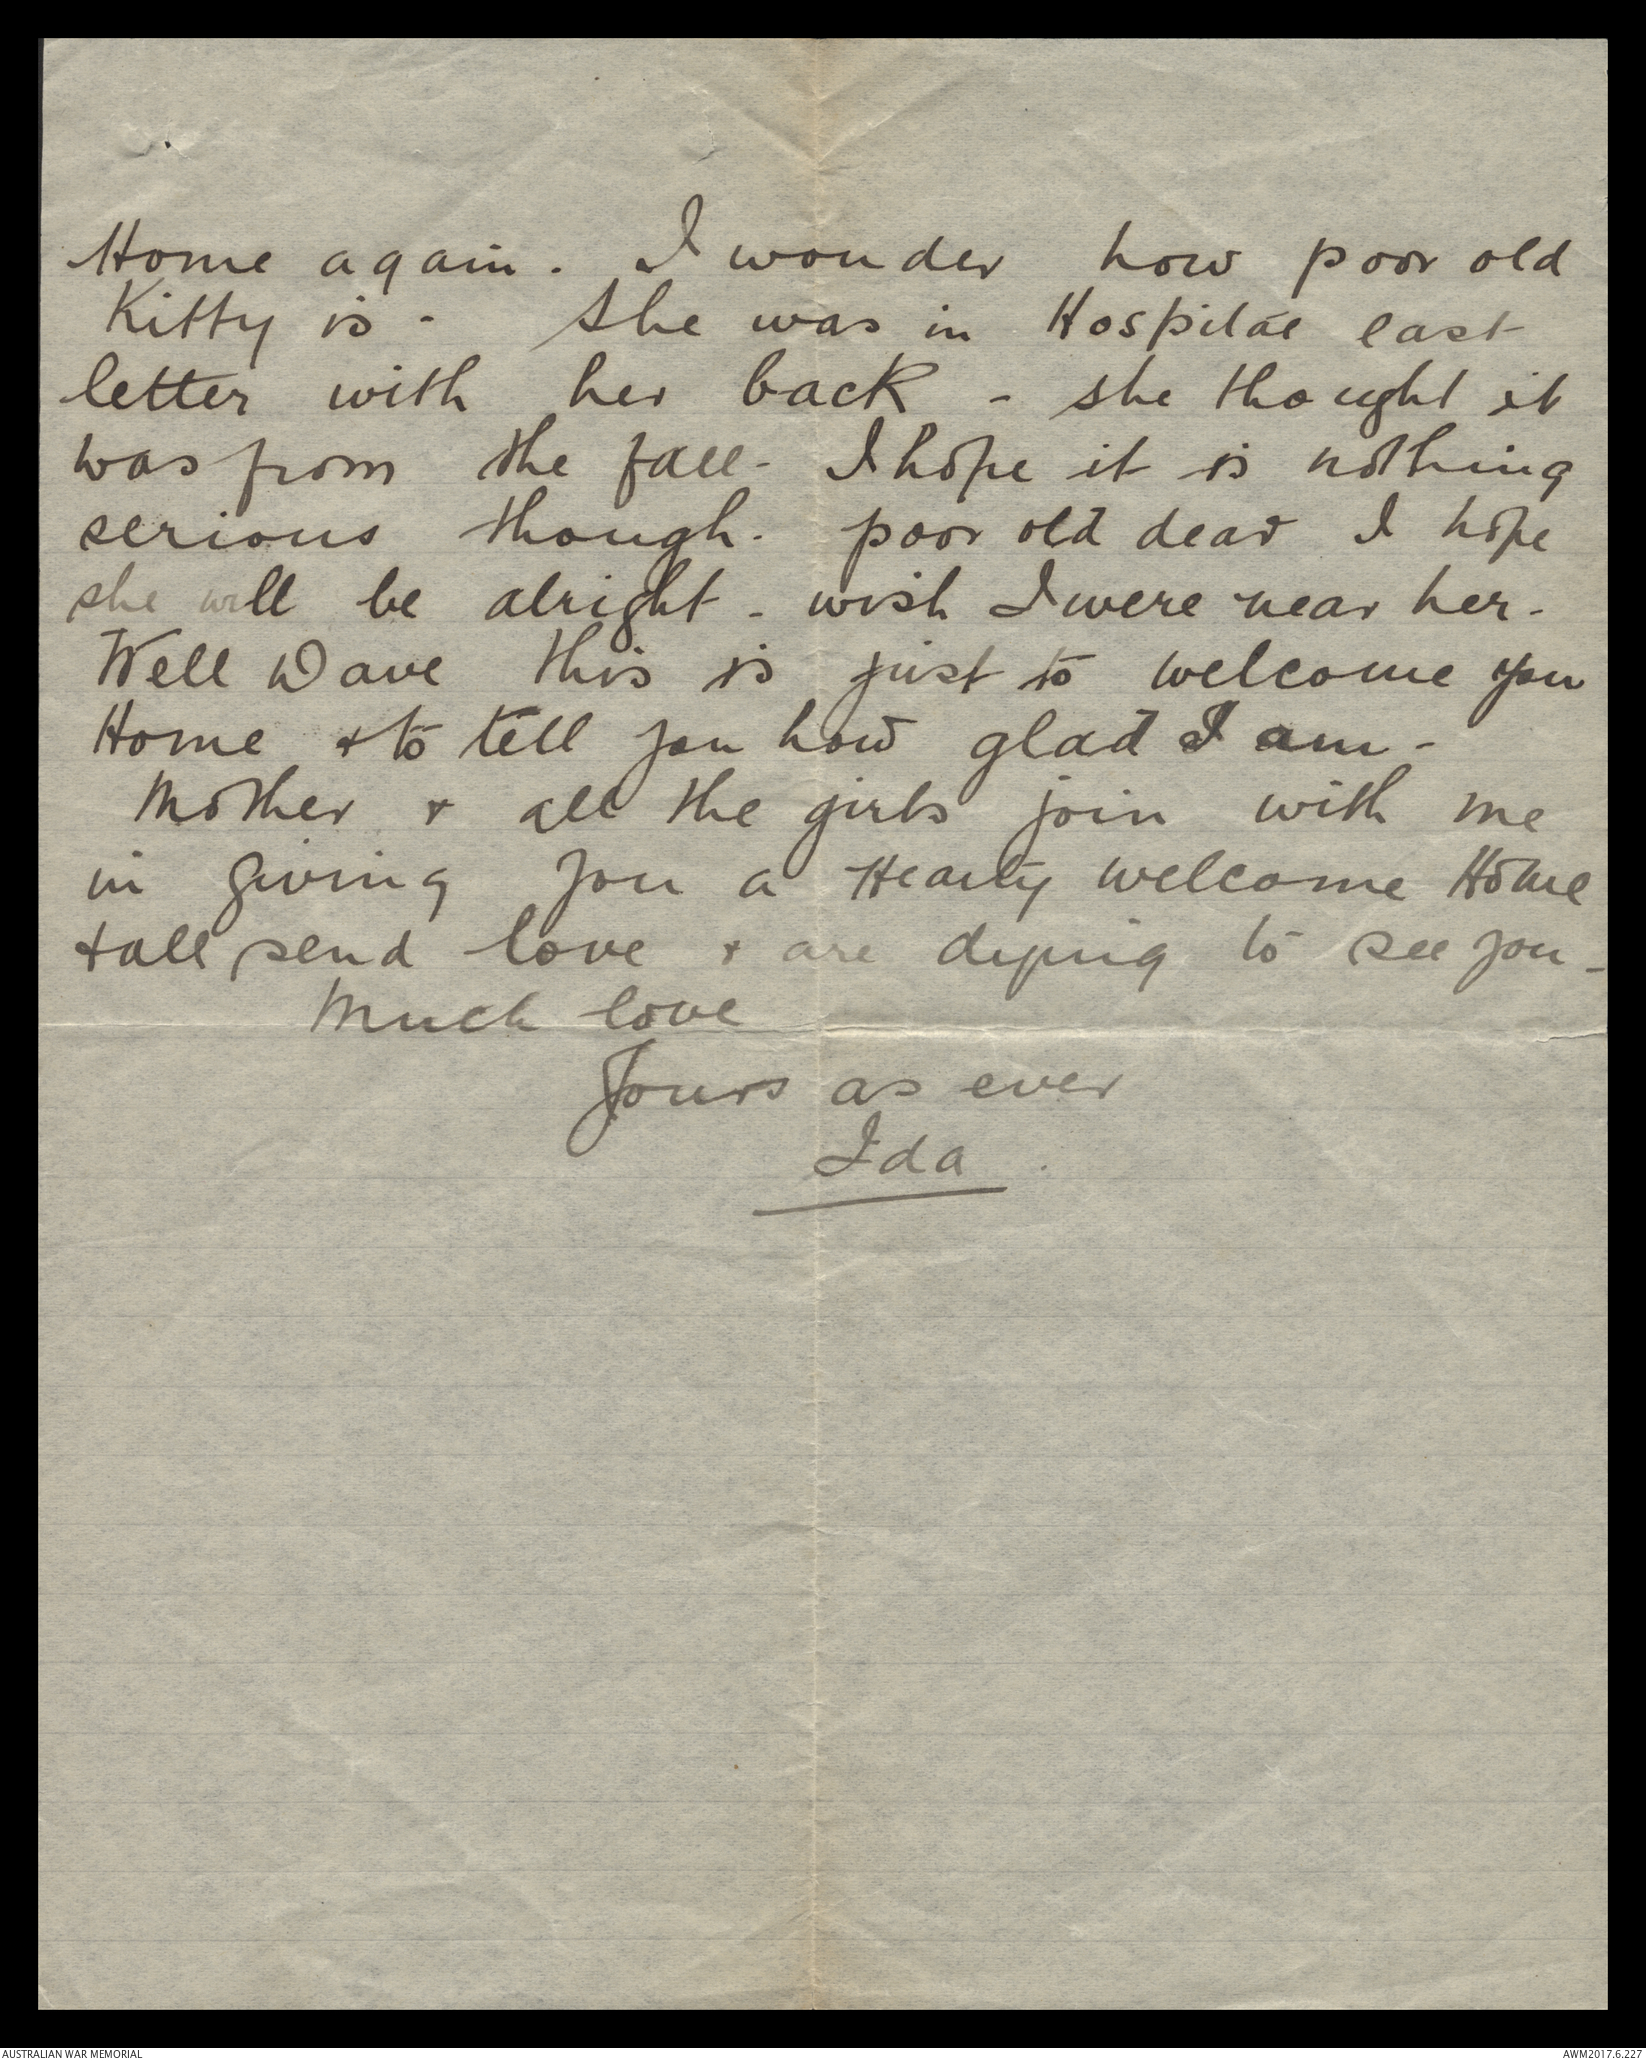 Home again. I wonder how poor old
Kitty is - She was in Hospital last
letter with her back - she thought it
was from the fall - I hope it is nothing
serious though - poor old dear I hope
she will be alright - wish I were near her -
Well Dave this is just to welcome you
Home & to tell you how glad I am -
Mother & all the girls join with me
in giving you a Hearty welcome Home
& all send love & are dying to see you -
Much love
Yours as ever
Ida.
AUSTRALIAN WAR MEMORIAL
AWM2017.6.227